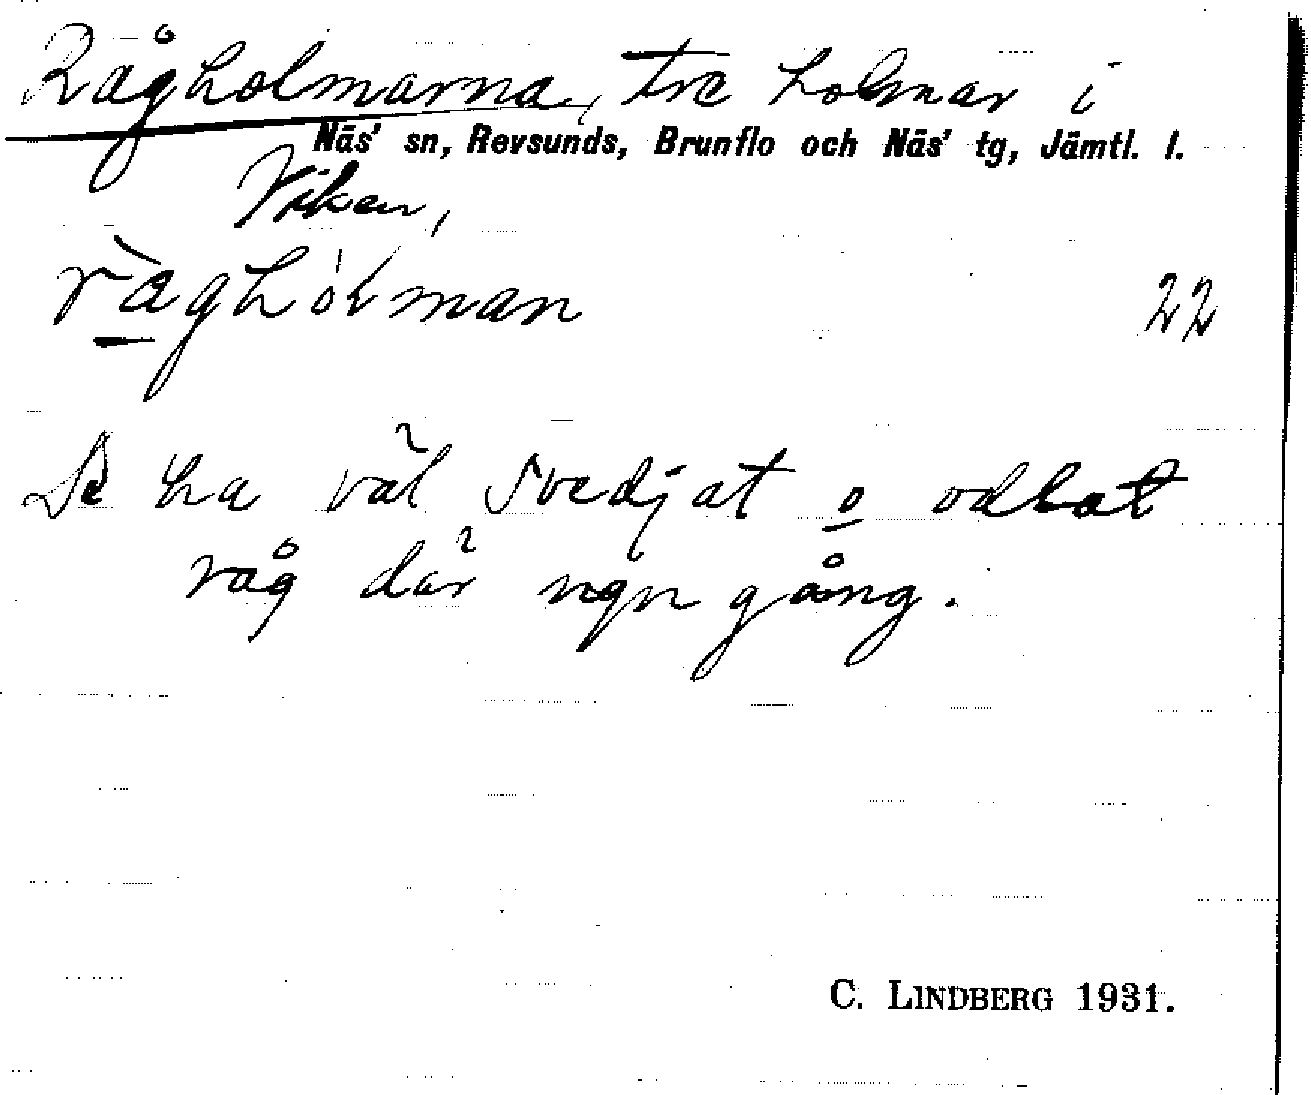 Rågholmarna, tre holmar i
Näs' sn, Revsunds, Brunflo och Näs' tg, Jämtl. l.
Viken,
ràghólman 22
De ha väl svedjat o odlat
råg där ngn gång.
C. LINDBERG 1931.